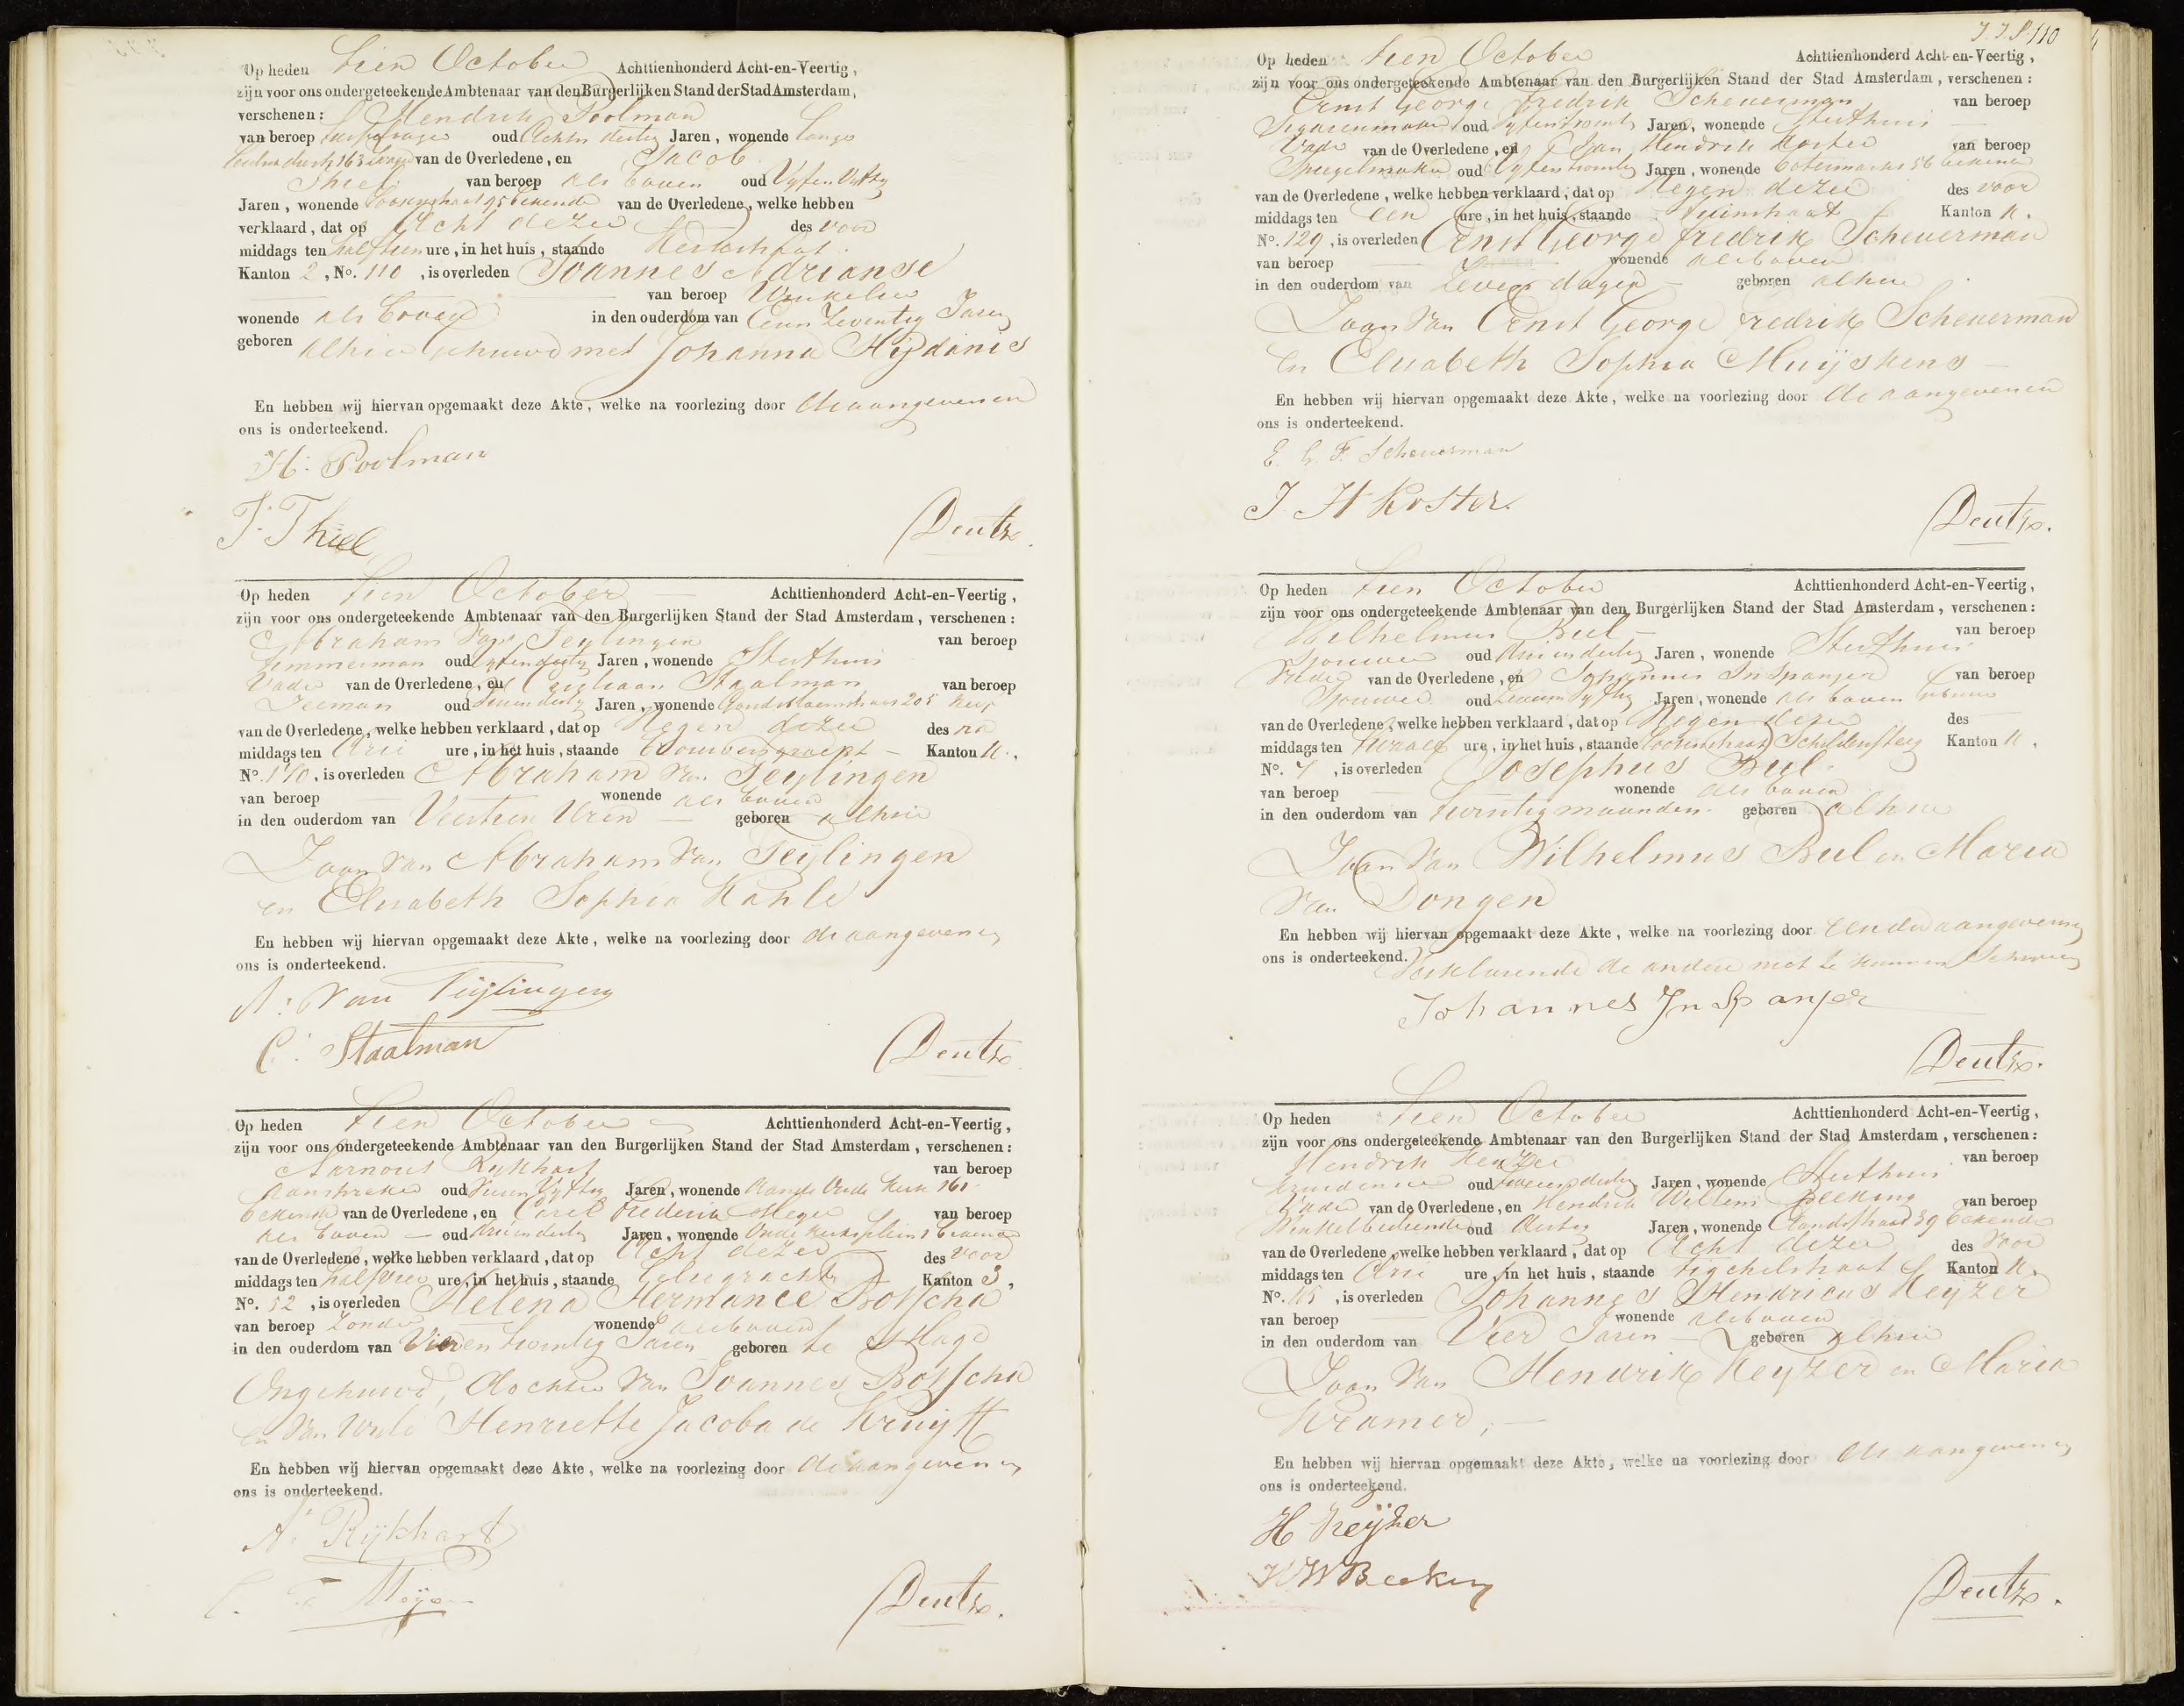 Op heden tien October Achttienhonderd Acht-en-Veertig,
zijn voor ons ondergeteekende Ambtenaar van den Burgerlijken Stand der Stad Amsterdam,
verschenen: Hendrik Poolman
van beroep oud Acht en dertig Jaren, wonende Lange
163 van de Overledene, en Jacob
Thiel van beroep als boven oud Vyf en Vyftig
Jaren, wonende 95 bekende van de Overledene, welke hebben
verklaard, dat op Acht dezer des voor
middags ten half tien ure, in het huis, staande
Kanton 2, No. 110, is overleden Joannes Adrianse
van beroep Winkelier
wonende als boven in den ouderdom van Een en Zeventig Jaren
geboren alhier gehuwd met Johanna Heijdanis
En hebben wij hiervan opgemaakt deze Akte, welke na voorlezing door de aangeveren en
ons is onderteekend.
H: Poolman
J: Thiel
Deutz.
Op heden tien October Achttienhonderd Acht-en-Veertig,
zijn voor ons ondergeteekende Ambtenaar van den Burgerlijken Stand der Stad Amsterdam, verschenen:
Abraham van Teylingen van beroep
Timmerman oud Vyf en dertig Jaren, wonende Sterfhuis
Vader van de Overledene, en Staalman van beroep
Zeeman oud Jaren, wonende 205
van de Overledene, welke hebben verklaard, dat op Negen dezer des na
middags ten drie ure, in het huis, staande Kanton N.,
No. 170, is overleden Abraham van Teylingen
van beroep wonende als boven
in den ouderdom van Veertien Uren geboren alhier
Zoon van Abraham van Teijlingen
en Elisabeth Sophia Kahle
En hebben wij hiervan opgemaakt deze Akte, welke na voorlezing door de aangeveren en
ons is onderteekend.
A: van Teijlingen
C: Staalman
Deutz
Op heden tien October Achttienhonderd Acht-en-Veertig,
zijn voor ons ondergeteekende Ambtenaar van den Burgerlijken Stand der Stad Amsterdam, verschenen:
Aarnout Rykhart van beroep
Aanspreker oud Jaren, wonende aan de Oude Kerk 161
bekende van de Overledene, en Carel Frederik Meyer van beroep
als boven oud drie en dertig Jaren, wonende Oude Kerksplein 1 bekende
van de Overledene, welke hebben verklaard, dat op Acht dezer des voor
middags ten half drie ure, in het huis, staande Kanton 3,
No. 52, is overleden Helena Hermance Bosscha
van beroep Zonder wonende als boven
in den ouderdom van Vier en twintig Jaren geboren te s Hage
Ongehuwd, dochter van Joannes Bosscha
en van wyle Henriette Jacoba de Kruijff
En hebben wij hiervan opgemaakt deze Akte, welke na voorlezing door de aangeveren en
ons is onderteekend.
A. Rijkhart
C. F. Meijer
Deutz.
110
Op heden tien October Achttienhonderd Acht-en-Veertig,
zijn voor ons ondergeteekende Ambtenaar van den Burgerlijken Stand der Stad Amsterdam, verschenen:
Ernst George Fredrik Scheuerman van beroep
Sigarenmaker oud Vyf en twintig Jaren, wonende Sterfhuis
Vader van de Overledene, en Jan Hendrik Koster van beroep
Spiegelmaker oud Vyf en twintig Jaren, wonende Botermarkt 56 bekende
van de Overledene, welke hebben verklaard, dat op Negen dezer des voor
middags ten een ure, in het huis, staande Tuinstraat Kanton N.
No. 129, is overleden Ernst George Fredrik Scheuerman
van beroep wonende als boven
in den ouderdom van Zeven dagen geboren alhier
Zoon van Ernst George Fredrik Scheuerman
en Elisabeth Sophia Muijskens
En hebben wij hiervan opgemaakt deze Akte, welke na voorlezing door de aangeveren en
ons is onderteekend.
E. G. F. Scheuerman
J. H Koster.
Deutz.
Op heden tien October Achttienhonderd Acht-en-Veertig,
zijn voor ons ondergeteekende Ambtenaar van den Burgerlijken Stand der Stad Amsterdam, verschenen:
Wilhelmus Bul van beroep
Sjouwer oud drie en dertig Jaren, wonende Sterfhuis
Vader van de Overledene, en Johannes In Spanjer van beroep
Sjouwer oud Jaren, wonende als boven
van de Overledene, welke hebben verklaard, dat op Negen dezer des
middags ten twaalf ure, in het huis, staande Kanton N,
No. 7, is overleden Josephus Bul
van beroep wonende als boven
in den ouderdom van twintig maanden geboren alhier
Zoon van Wilhelmus Bul en Maria
van Dongen
En hebben wij hiervan opgemaakt deze Akte, welke na voorlezing door een der aangeveren en
ons is onderteekend. Verklarende de andere niet te kunnen Schryven
Johannes In Spanjer
Deutz.
Op heden tien October Achttienhonderd Acht-en-Veertig,
zijn voor ons ondergeteekende Ambtenaar van den Burgerlijken Stand der Stad Amsterdam, verschenen:
Hendrik Keyzer van beroep
Kruidenier oud Jaren, wonende Sterfhuis
Vader van de Overledene, en Hendrik Willem Beeking van beroep
Winkelbediende oud dertig Jaren, wonende 39 bekende
van de Overledene, welke hebben verklaard, dat op Acht dezer des voor
middags ten drie ure, in het huis, staande Tigchelstraat Kanton N.
No. 115, is overleden Johannes Hendricus Keijzer
van beroep wonende als boven
in den ouderdom van Vier Jaren geboren alhier
Zoon van Hendrik Keyzer en Maria
Kramer;
En hebben wij hiervan opgemaakt deze Akte, welke na voorlezing door de aangeveren en
ons is onderteekend.
H Keijzer
H W Beeking
Deutz.